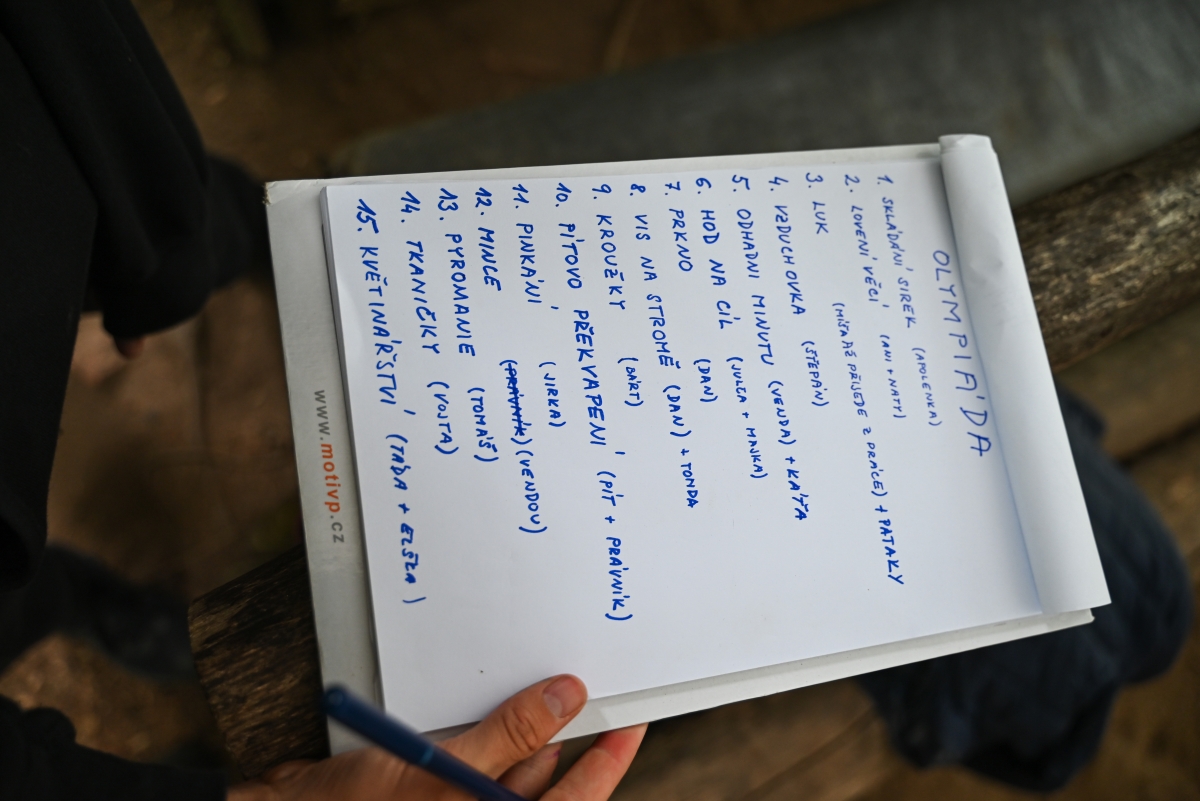 OLYMPIÁDA
1. SKLÁDÁNÍ SIREK (APOLENKA)
2. LOVENÍ VĚCÍ (ANI + NATY)
3. LUK (MÍŠA AŽ PŘIJEDE Z PRÁCE) + PATAKY
4. VZDUCHOVKA (ŠTĚPÁN)
5. ODHADNI MINUTU (VENDA) + KÁŤA
6. HOD NA CÍL (JULČA + MAJKA)
7. PRKNO (DAN)
8. VIS NA STROMĚ (DAN) + TONDA
9. KROUŽKY (BÁRT)
10. PÍTOVO PŘEKVAPENÍ (PÍT + PRÁVNÍK)
11. PINKÁNÍ (JIRKA)
12. MINCE (PRÁVNÍK) (VENDOV)
13. PYROMANIE (TOMÁŠ)
14. TKANIČKY (VOJTA)
15. KVĚTINÁŘSTVÍ (TÁĎA +
www.motivp.cz